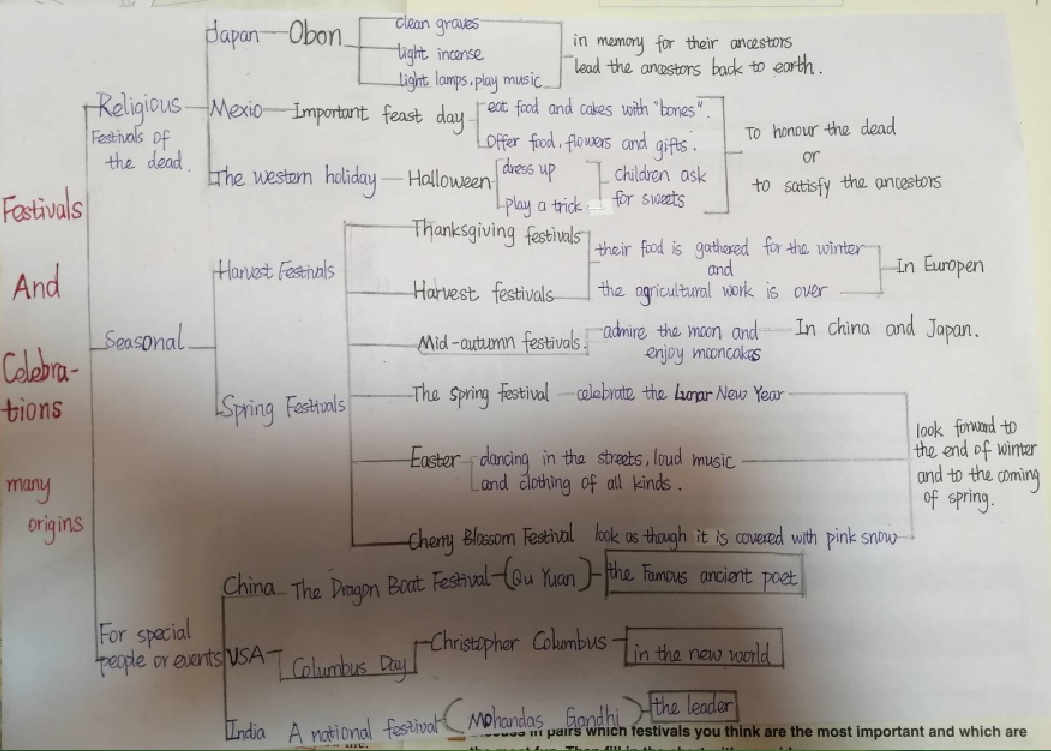 Festivals
And
Celebra-
tions
many
origins
Religious
Festivals of
the dead.
Japan
Obon
clean graves
light incense
light lamps, play music
in memory for their ancestors
lead the ancestors back to earth.
Mexio
Important feast day
eat food and cakes with "bones".
Offer food, flowers and gifts.
The western holiday
Halloween
dress up
play a trick
children ask
for sweets
To honour the dead
or
to satisfy the ancestors
Seasonal
Harvest Festivals
Thanksgiving festivals
Harvest festivals
their food is gathered for the winter
and
the agricultural work is over
In Europen
Mid-autumn festivals.
admire the moon and
enjoy mooncakes
In china and Japan.
Spring Festivals
The Spring Festival
celebrate the Lunar New Year
Easter
dancing in the streets, loud music
and clothing of all kinds.
Cherry Blossom Festival
look as though it is covered with pink snow
look forward to
the end of winter
and to the coming
of spring.
For special
people or events
China
The Dragon Boat Festival
(Qu Yuan)
the Famous ancient poet
USA
Columbus Day
Christopher Columbus
in the new world
India
A national festival
(Mohandas Gandhi)
the leader
in pairs which festivals you think are the most important and which are